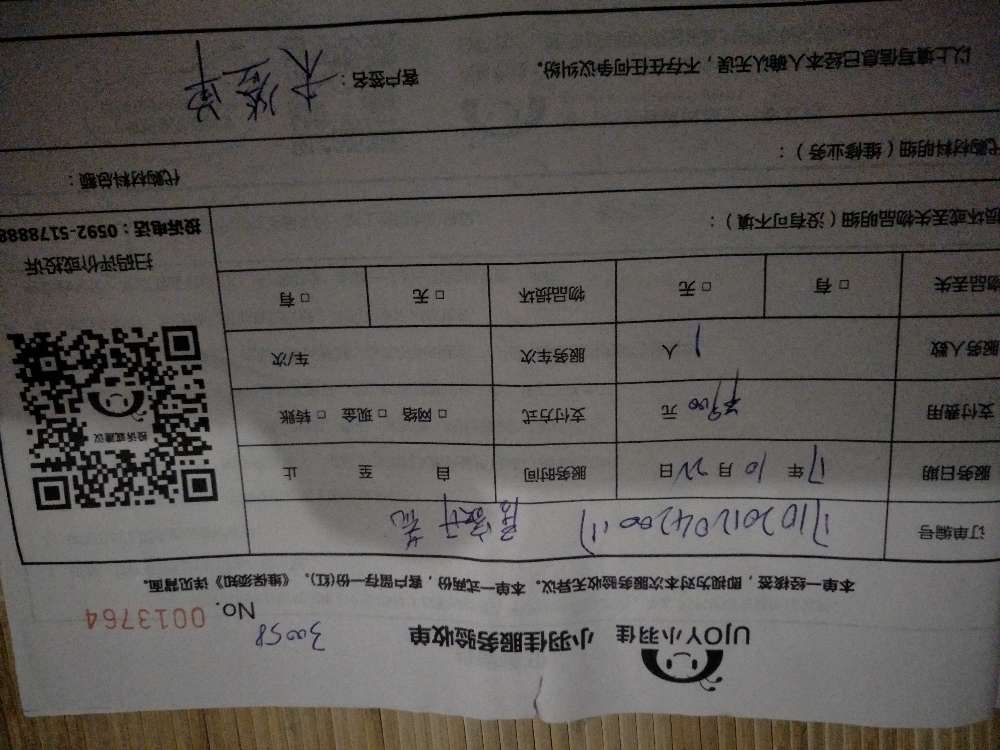 UJOY小羽佳 小羽佳服务验收单
30058
No. 0013764
本单一经核签，即视为对本次服务验收无异议。本单一式两份，客户留存一份(红)。《维保须知》详见背面。
订单编号 居家开荒
服务日期 17年10月22日 服务时间 自 至 止
支付费用 元 支付方式 □ 网络 □ 现金 □ 转账
服务人数 1 人 服务车次 车/次
物品丢失 □ 有 □ 无 物品损坏 □ 无 □ 有
投诉或建议
扫码评价或投诉
投诉电话：0592-5178888
损坏或丢失物品明细（没有可不填）：
代购材料明细（维修业务）： 代购材料总额：
以上填写信息已经本人确认无误，不存在任何争议纠纷。 客户签名：